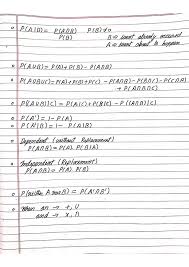 P(A|B) = P(A∩B) / P(B)   P(B)≠0
B → event already occurred
A → event about to happen
P(A∪B) = P(A)+P(B) - P(A∩B)
P(A∪B∪C) = P(A)+P(B)+P(C) - P(A∩B) - P(B∩C) - P(C∩A)
+ P(A∩B∩C)
P(A∪B|C) = P(A|C)+P(B|C) - P(A∩B|C)
P(A') = 1 - P(A)
P(A'|B) = 1 - P(A|B)
Dependent (without Replacement)
P(A∩B) = P(A).P(B|A)
Independent (Replacement)
P(A∩B) = P(A).P(B)
P(neither A nor B) = P(A'∩B')
When or → +, ∪
and → ×, ∩